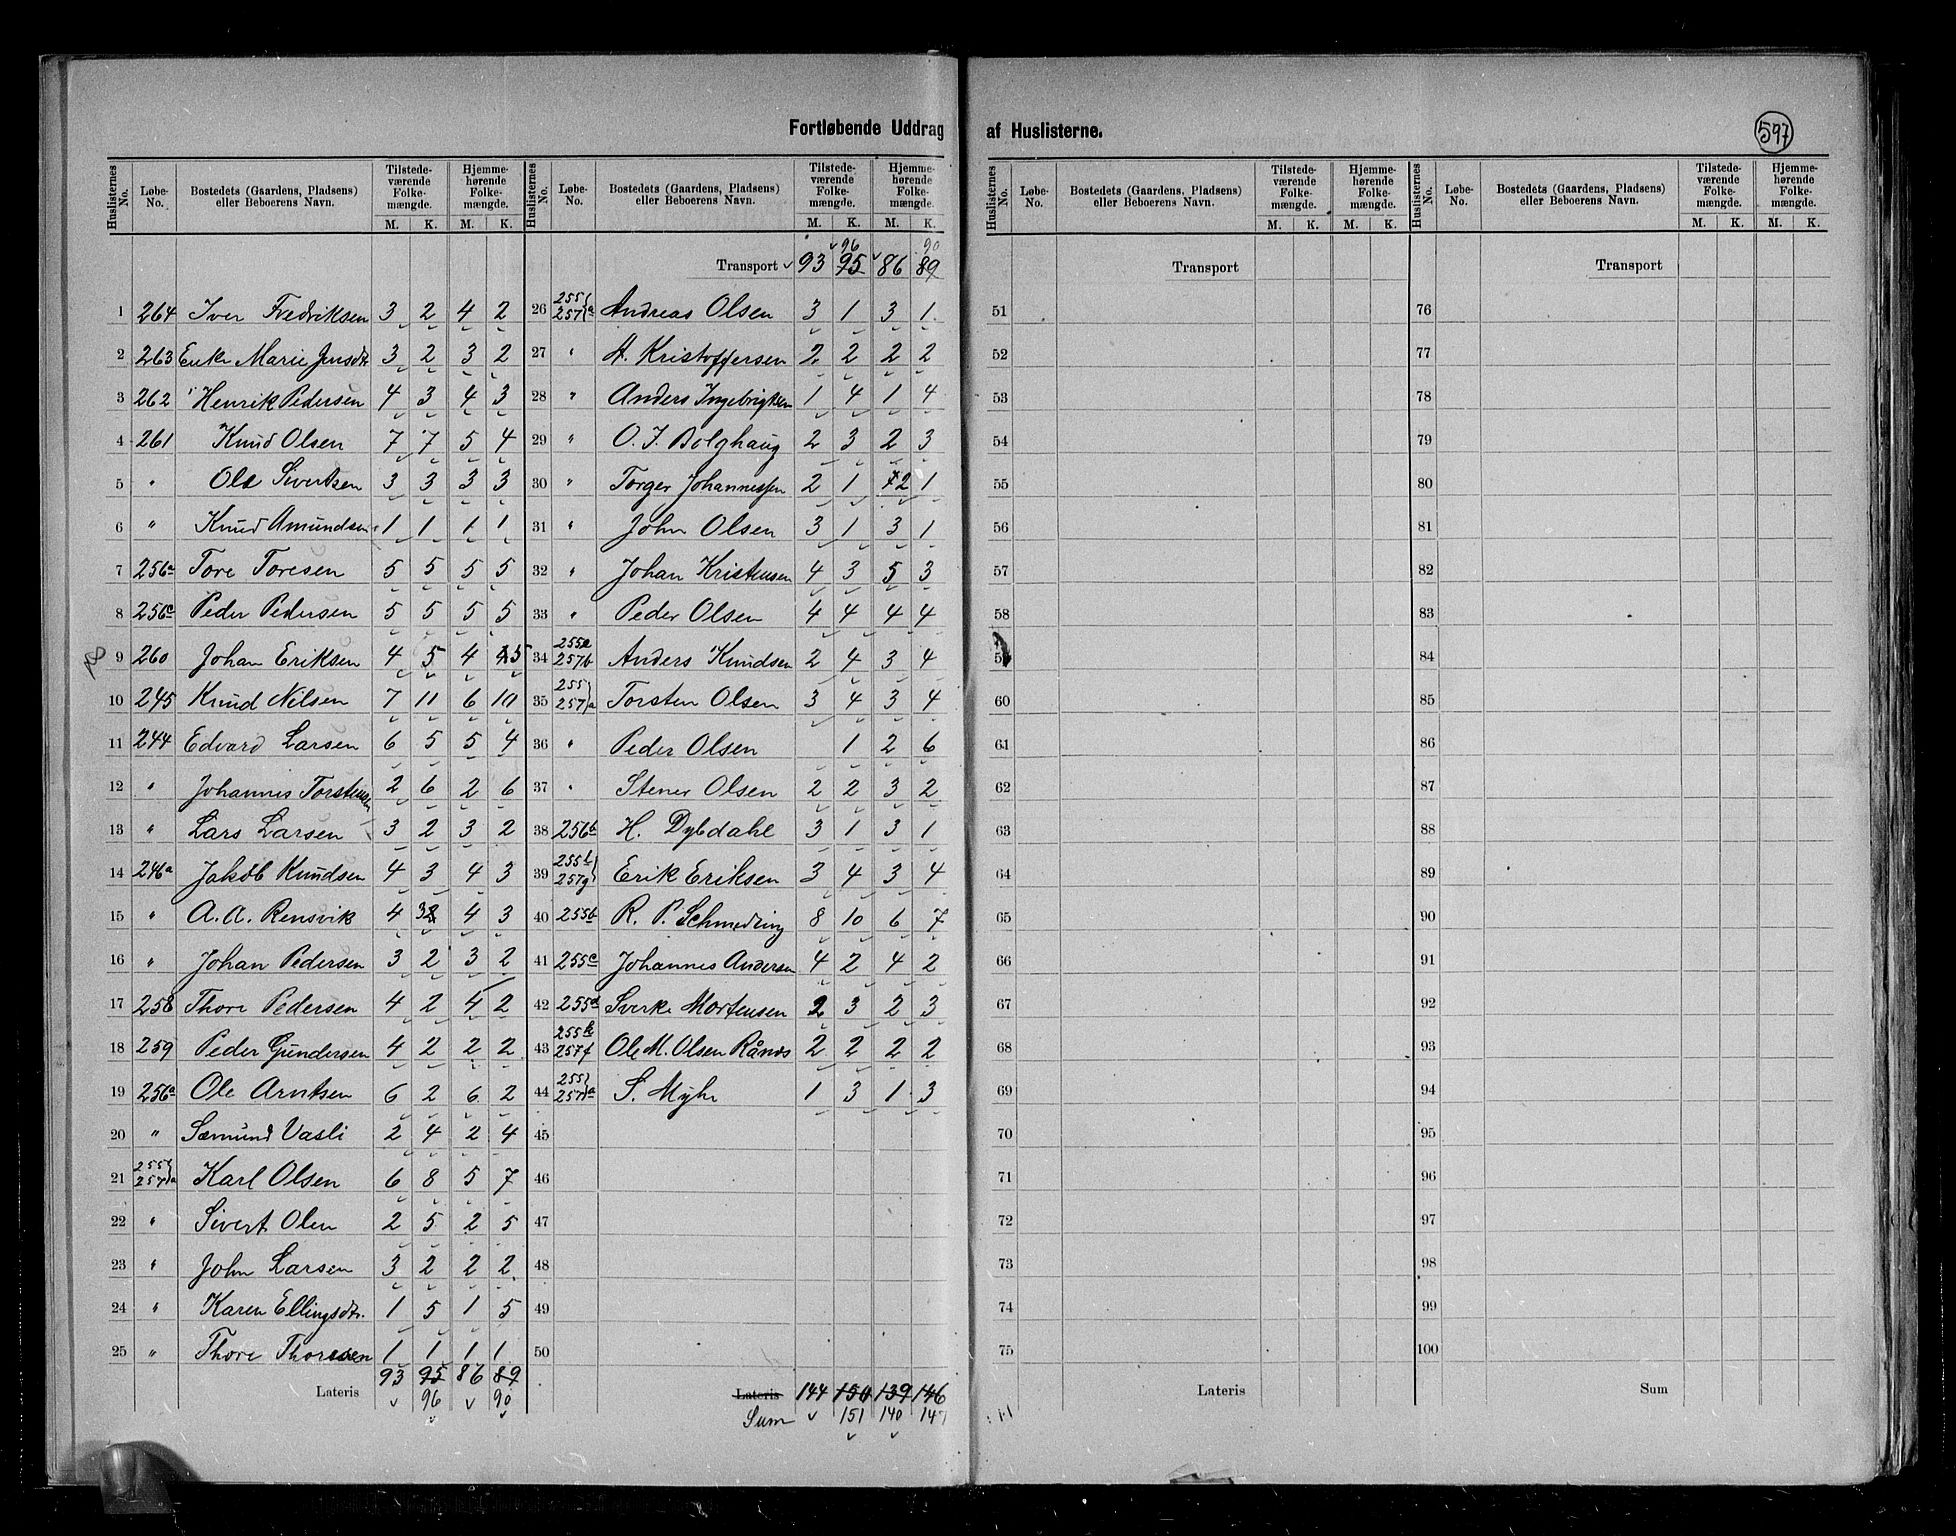 Fortløbende Uddrag af Huslisterne.
597
Huslisternes No. Løbe-No. Bostedets (Gaardens, Pladsens) eller Beboerens Navn. Tilstedeværende Folkemængde. M. K. Hjemmehørende Folkemængde. M. K.
1 264 Iver Fredriksen 3 2 4 2
2 263 Enke Marie Jensdtr 3 2 3 2
3 262 Henrik Pedersen 4 3 4 3
4 261 Knud Olsen 7 7 5 4
5 " Ole Sivertsen 3 3 3 3
6 " Knud Amundsen 1 1 1 1
7 256a Tore Toresen 5 5 5 5
8 256c Peder Pedersen 5 5 5 5
9 260 Johan Eriksen 4 5 4 5
10 245 Knud Nilsen 7 11 6 10
11 244 Edvard Larsen 6 5 5 4
12 " Johannes Torstensen 2 6 2 6
13 " Lars Larsen 3 2 3 2
14 246a Jakob Knudsen 4 3 4 3
15 " A. A. Rensvik 4 3 4 3
16 " Johan Pedersen 3 2 3 2
17 258 Thore Pedersen 4 2 4 2
18 259 Peder Gundersen 4 2 2 2
19 256a Ole Arntsen 6 2 6 2
20 " Sæmund Vasli 2 4 2 4
21 255 257 a Karl Olsen 6 8 5 7
22 " Sivert Olen 2 5 2 5
23 " John Larsen 3 2 2 2
24 " Karen Ellingsdtr. 1 5 1 5
25 " Thore Thoresen 1 1 1 1
93 95 86 89
Lateris 96 90
Huslisternes No. Løbe-No. Bostedets (Gaardens, Pladsens) eller Beboerens Navn. Tilstedeværende Folkemængde. M. K. Hjemmehørende Folkemængde. M. K.
96 90
Transport 93 95 86 89
26 255 257 a Andreas Olsen 3 1 3 1
27 " A. Kristoffersen 2 2 2 2
28 " Anders Ingebrigtsen 1 4 1 4
29 " O. J. Bolghaug 2 3 2 3
30 " Torger Johannessen 2 1 2 1
31 " John Olsen 3 1 3 1
32 " Johan Kristensen 4 3 5 3
33 " Peder Olsen 4 4 4 4
34 255e 257b Anders Knudsen 2 4 3 4
35 255 257 a Torsten Olsen 3 4 3 4
36 " Peder Olsen 1 2 6
37 " Stener Olsen 2 2 3 2
38 256b H. Dybdahl 3 1 3 1
39 255l 257g Erik Eriksen 3 4 3 4
40 255b R. P. Schmeding 8 10 6 7
41 255c Johannes Andersen 4 2 4 2
42 255d Sverke Mortensen 2 3 2 3
43 255k 257f Ole M. Olsen Rånes 2 2 2 2
44 255 257 a S. Myhr 1 3 1 3
45
46
47
48
49
50
Lateris 144 150 139 146
Sum 151 140 147
Huslisternes No. Løbe-No. Bostedets (Gaardens, Pladsens) eller Beboerens Navn. Tilstedeværende Folkemængde. M. K. Hjemmehørende Folkemængde. M. K.
Transport
51
52
53
54
55
56
57
58
59
60
61
62
63
64
65
66
67
68
69
70
71
72
73
74
75
Lateris
Huslisternes No. Løbe-No. Bostedets (Gaardens, Pladsens) eller Beboerens Navn. Tilstedeværende Folkemængde. M. K. Hjemmehørende Folkemængde. M. K.
Transport
76
77
78
79
80
81
82
83
84
85
86
87
88
89
90
91
92
93
94
95
96
97
98
99
100
Sum